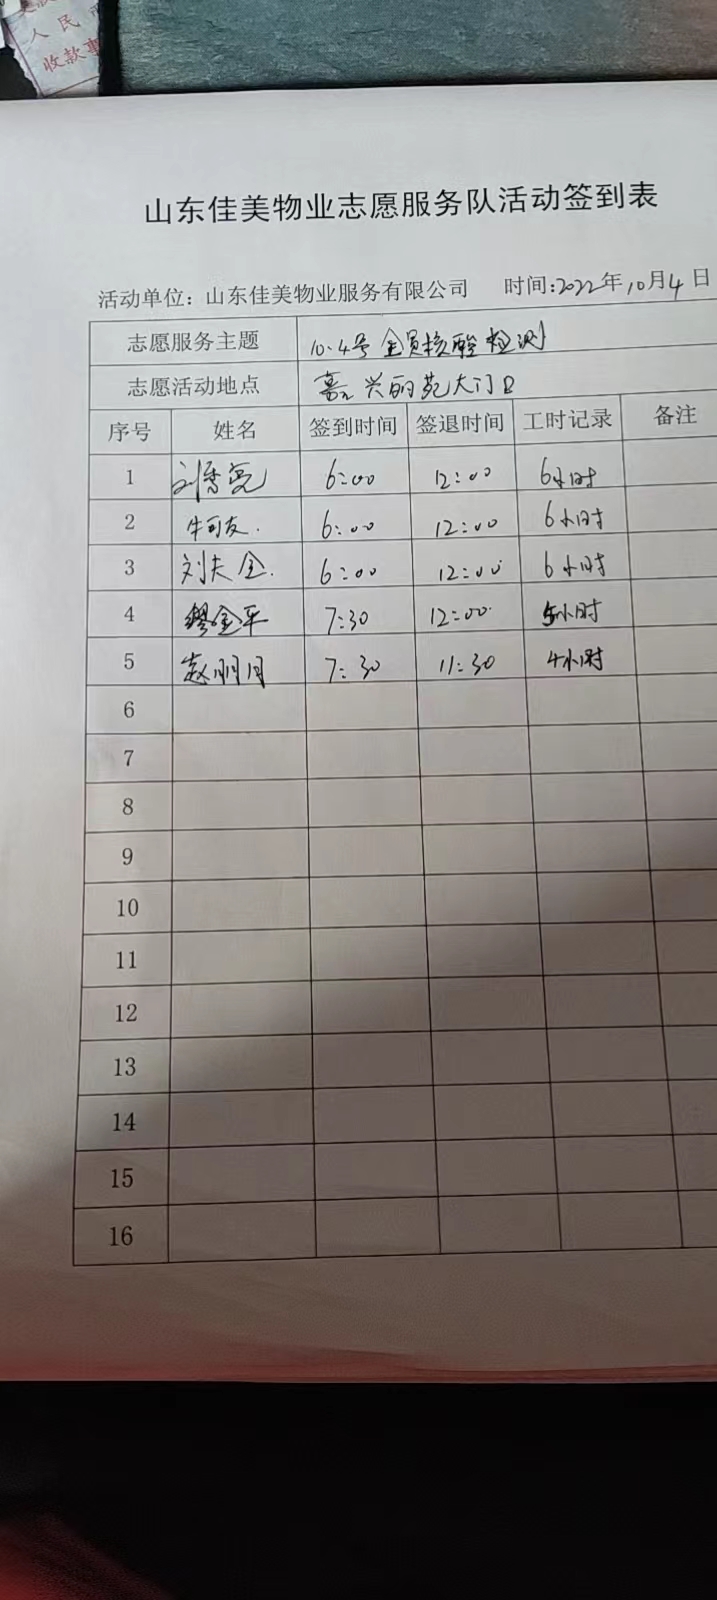 人民
收款
山东佳美物业志愿服务队活动签到表
活动单位：山东佳美物业服务有限公司 时间:2022年10月4日
志愿服务主题 10.4号全员核酸检测
志愿活动地点 嘉兴丽苑大门口
序号 姓名 签到时间 签退时间 工时记录 备注
1 刘 亮 6:00 12:00 6小时
2 牛可友. 6:00 12:00 6小时
3 刘夫全. 6:00 12:00 6小时
4 缪金平 7:30 12:00 5小时
5 赵明月 7:30 11:30 4小时
6
7
8
9
10
11
12
13
14
15
16